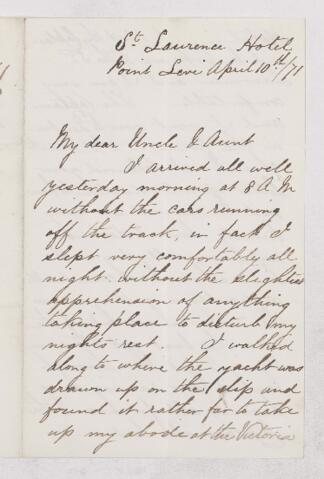 St Laurence Hotel
Point Levi April 10th/71
My dear Uncle & Aunt
I arrived all well
yesterday morning at 8 A.M
without the cars running
off the track, in fact I
slept very comfortably all
night without the slightest
apprehension of anything
taking place to disturb my
nights rest. I walked
along to where the yacht was
drawn up on the slip and
found it rather far to take
up my abode at the Victoria